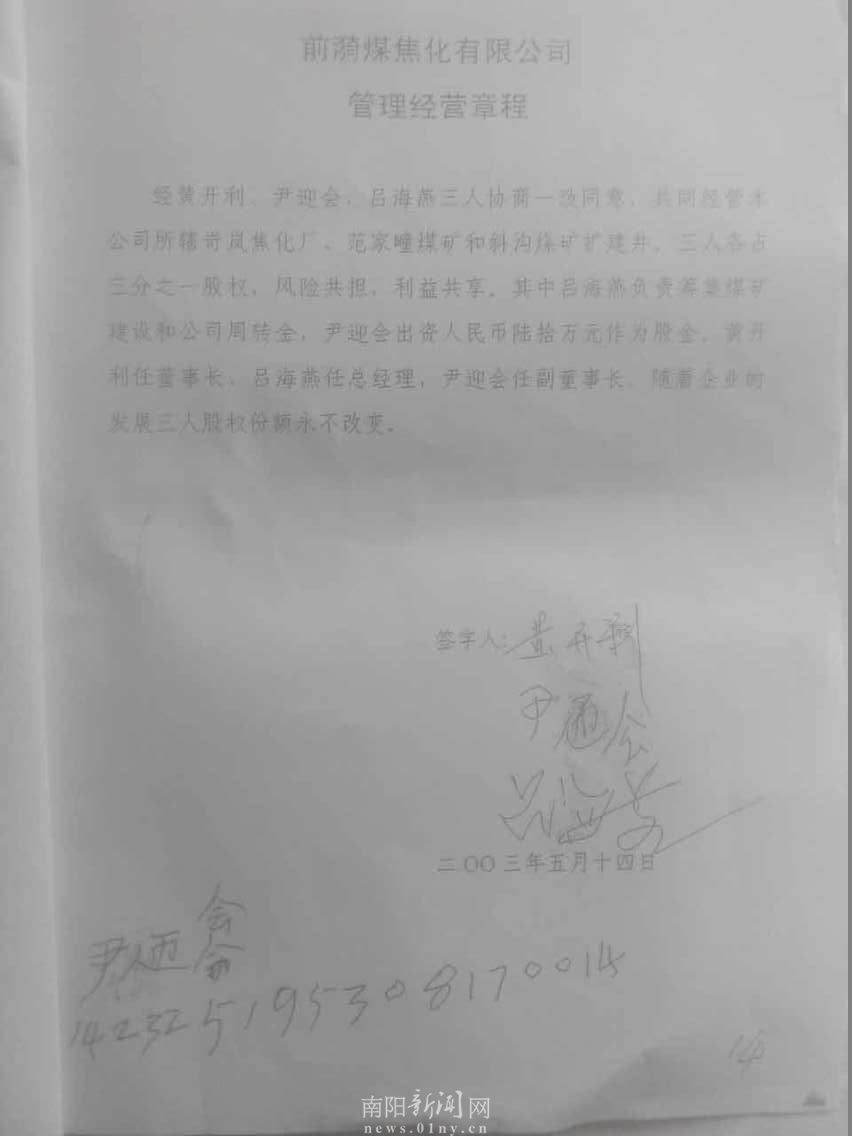 前漪煤焦化有限公司
管理经营章程
经黄开利、尹迎会、吕海燕三人协商一致同意，共同经营本
公司所辖岢岚焦化厂、范家疃煤矿和斜沟煤矿扩建井。三人各占
三分之一股权，风险共担，利益共享。其中吕海燕负责筹集煤矿
建设和公司周转金，尹迎会出资人民币陆拾万元作为股金。黄开
利任董事长、吕海燕任总经理，尹迎会任副董事长。随着企业的
发展三人股权份额永不改变。
签字人：黄开利
尹迎会
吕海燕
二〇〇三年五月十四日
会
尹
142325195308170014
14
南阳新闻网
news.01ny.cn